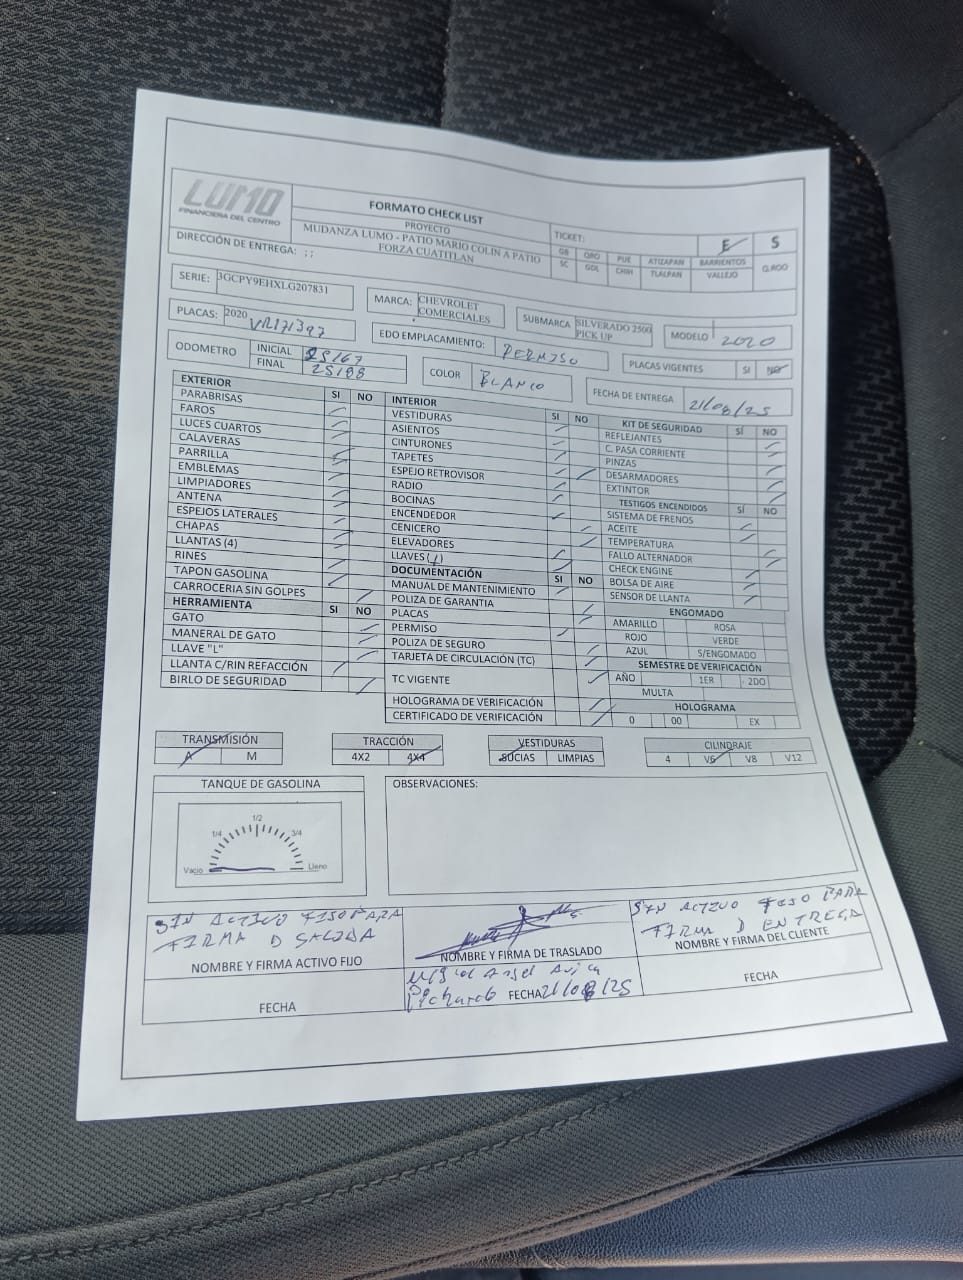 LUMO
FINANCIERA DEL CENTRO
FORMATO CHECK LIST
PROYECTO
MUDANZA LUMO - PATIO MARIO COLIN A PATIO FORZA CUATITLAN
TICKET:
E S
GB QRO PUE ATIZAPAN BARRIENTOS Q.ROO
SC GDL CHIH TLALPAN VALLEJO
DIRECCIÓN DE ENTREGA: ; ;
SERIE: 3GCPY9EHXLG207831
MARCA: CHEVROLET COMERCIALES
SUBMARCA SILVERADO 2500 PICK UP
MODELO 2020
PLACAS: 2020 VR171397
EDO EMPLACAMIENTO: PERMISO
PLACAS VIGENTES SI NO
ODOMETRO INICIAL 25167
FINAL 25188
COLOR BLANCO
FECHA DE ENTREGA 21/08/25
EXTERIOR SI NO
PARABRISAS
FAROS
LUCES CUARTOS
CALAVERAS
PARRILLA
EMBLEMAS
LIMPIADORES
ANTENA
ESPEJOS LATERALES
CHAPAS
LLANTAS (4)
RINES
TAPON GASOLINA
CARROCERIA SIN GOLPES
HERRAMIENTA SI NO
GATO
MANERAL DE GATO
LLAVE "L"
LLANTA C/RIN REFACCIÓN
BIRLO DE SEGURIDAD
INTERIOR SI NO
VESTIDURAS
ASIENTOS
CINTURONES
TAPETES
ESPEJO RETROVISOR
RADIO
BOCINAS
ENCENDEDOR
CENICERO
ELEVADORES
LLAVES (1)
DOCUMENTACIÓN SI NO
MANUAL DE MANTENIMIENTO
POLIZA DE GARANTIA
PLACAS
PERMISO
POLIZA DE SEGURO
TARJETA DE CIRCULACIÓN (TC)
TC VIGENTE
HOLOGRAMA DE VERIFICACIÓN
CERTIFICADO DE VERIFICACIÓN
KIT DE SEGURIDAD SÍ NO
REFLEJANTES
C. PASA CORRIENTE
PINZAS
DESARMADORES
EXTINTOR
TESTIGOS ENCENDIDOS SÍ NO
SISTEMA DE FRENOS
ACEITE
TEMPERATURA
FALLO ALTERNADOR
CHECK ENGINE
BOLSA DE AIRE
SENSOR DE LLANTA
ENGOMADO
AMARILLO ROSA
ROJO VERDE
AZUL S/ENGOMADO
SEMESTRE DE VERIFICACIÓN
AÑO 1ER 2DO
MULTA
HOLOGRAMA
0 00 EX
TRANSMISIÓN
A M
TRACCIÓN
4X2 4X4
VESTIDURAS
SUCIAS LIMPIAS
CILINDRAJE
4 V6 V8 V12
TANQUE DE GASOLINA
1/4 1/2 3/4
Vacio Lleno
OBSERVACIONES:
SIN ACTIVO FISO PARA
FIRMA D SALIDA
NOMBRE Y FIRMA ACTIVO FIJO
FECHA
NOMBRE Y FIRMA DE TRASLADO
Miguel Angel
FECHA 21/08/25
SIN ACTIVO FISO PARA
FIRMA D ENTREGA
NOMBRE Y FIRMA DEL CLIENTE
FECHA